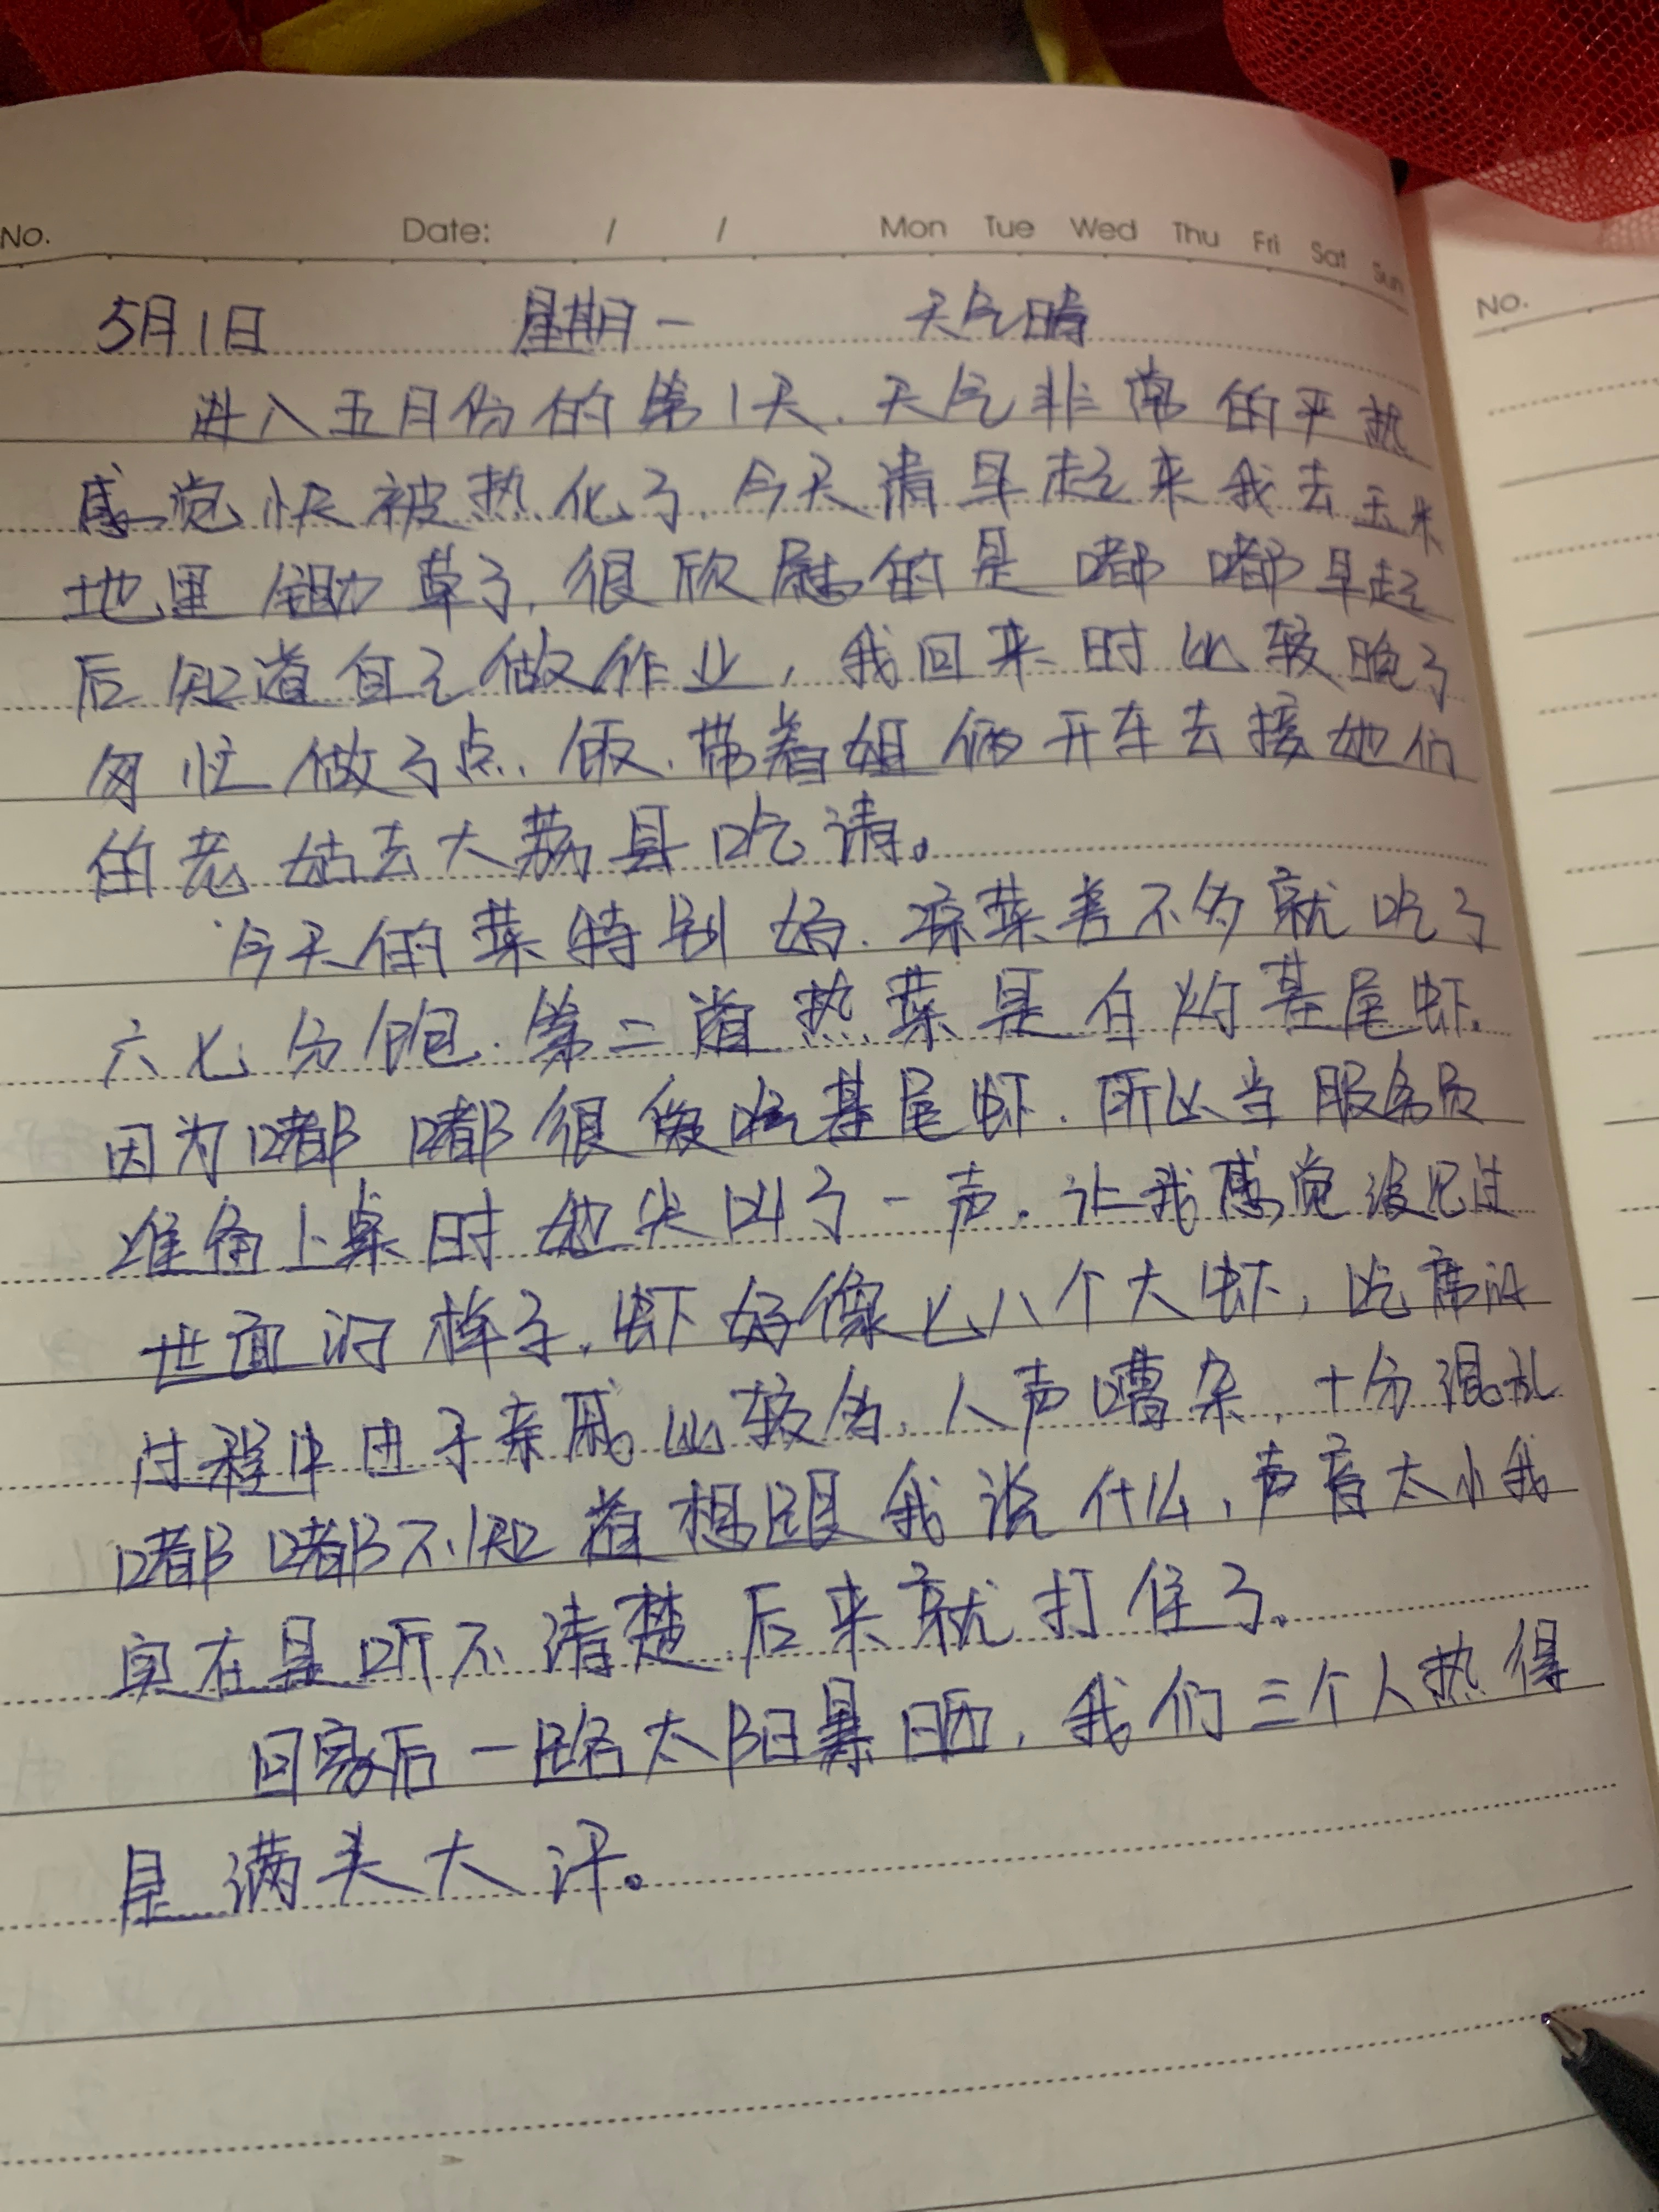 No. Date: / / Mon Tue Wed Thu Fri Sat Sun
No.
5月1日 星期一 天气晴
进入五月份的第1天.天气非常的平热
感觉快被热化了.今天清早起来我去玉米
地里锄草了,很欣慰的是嘟嘟早起
后知道自己做作业,我回来时比较晚了
匆忙做了点、饭、带着姐俩开车去接她们
的老姑去大荔县吃请。
今天的菜特别好.凉菜差不多就吃了
六七分饱.第二道热菜是白灼基尾虾.
因为嘟嘟很像吃基尾虾.所以当服务员
准备上桌时她尖叫了一声.让我感觉没见过
世面的样子.虾好像七八个大虾,吃席的
过程中由于亲戚比较多,人声嘈杂,十分混乱
嘟嘟不知道想跟我说什么,声音太小我
实在是听不清楚.后来就打住了。
回家后一路太阳暴晒,我们三个人热得
是满头大汗。